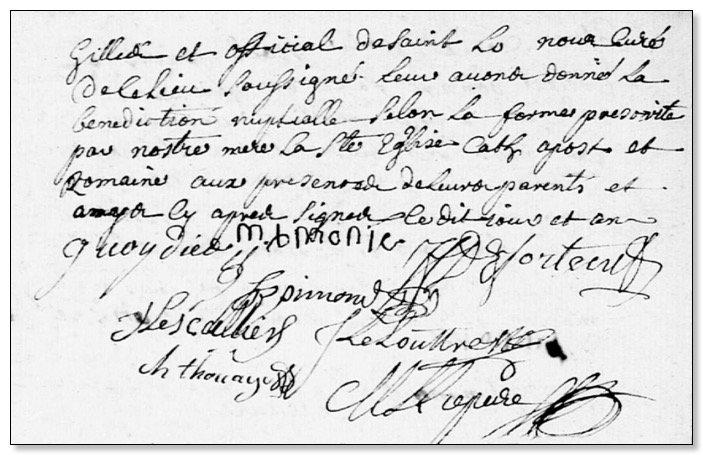 Gilles et official de saint Lo nous curé
de le lieu soussigné leur avons donné la
benediction nuptialle selon la forme prescrite
par nostre mere la Ste Eglise Cath apost et
Romaine aux presences de leurs parents et
amys cy apres signes le dit jour et an
quoy dict
pimond
Lescalliers
Le Louttre